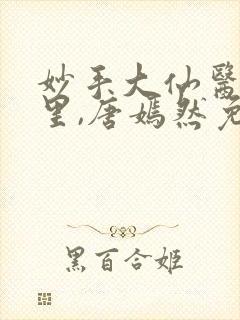 妙手大仙醫
里,唐嫣然免
黑百合姬